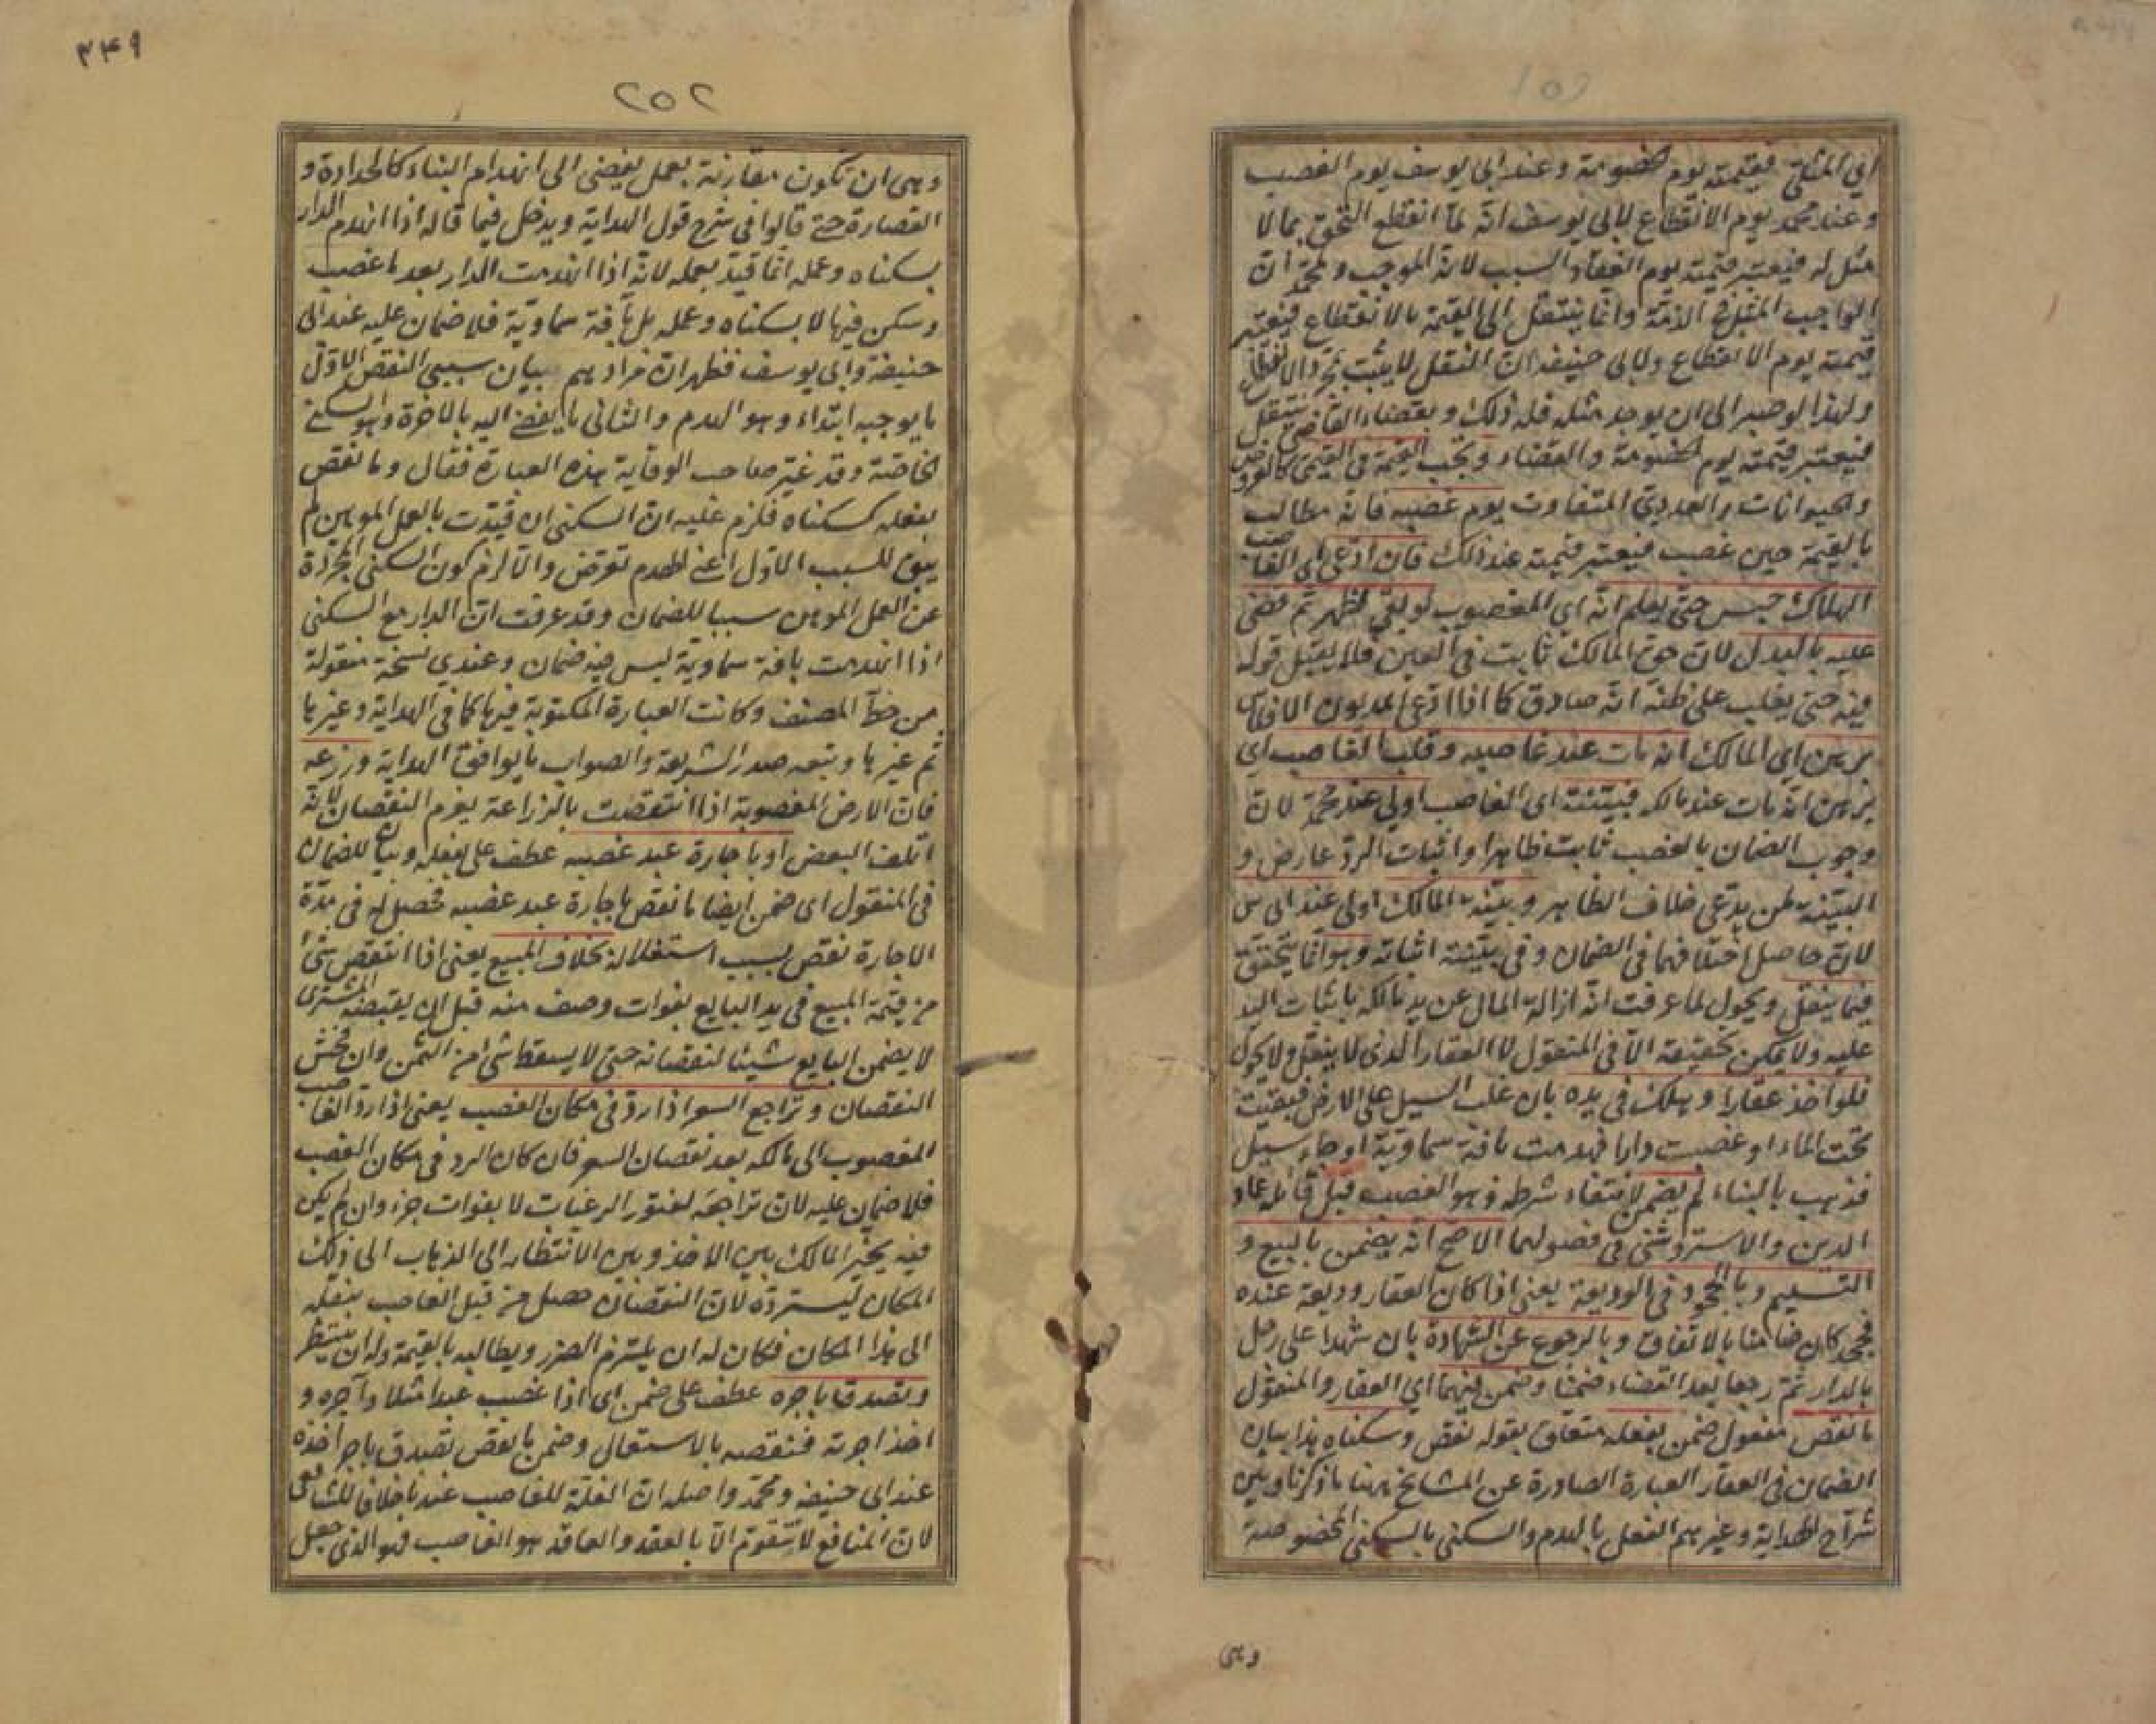 اي المثلي فقيمته يوم الخصومة وعند ابي يوسف يوم الغصب
وعند محمد يوم الانقطاع لابي يوسف انه لما انقطع التحق بما لا
مثل له فيعتبر قيمته يوم انعقاد السبب لانه الموجب ولمحمد ان
الواجب المثل في الذمة وانما ينتقل الى القيمة بالانقطاع فيعتبر
قيمته يوم الانقطاع ولابي حنيفة ان النقل لا يثبت بمجرد الانقطاع
ولهذا لو صبر الى ان يوجد مثله فله ذلك وبقضاء القاضي ينتقل
فيعتبر قيمته يوم الخصومة والقضاء وتجب القيمة في القيمي كالعروض
والحيوانات والعددي المتفاوت يوم غصبه فانه مطالب
بالقيمة حين غصب فيعتبر قيمته عند ذلك فان ادعى اي الغاصب
الهلاك حبس حتى يعلم انه اي المغصوب لو بقي لظهر ثم قضي
عليه بالبدل لان حق المالك ثابت في العين فلا يقبل قوله
فيه حتى يغلب على ظنه انه صادق كما اذا ادعى المديون الافلاس
برهن اي المالك انه مات عند غاصبه وقلبا الغاصب اي
برهن انه مات عند مالكه فبينته اي الغاصب اولى عند محمد لان
وجوب الضمان بالغصب ثابت ظاهرا واثبات الرد عارض و
البينة لمن يدعي خلاف الظاهر وبينة المالك اولى عند ابي س
لان حاصل اختلافهما في الضمان وفي بينته اثباته وهو انما يتحقق
فيما ينقل ويحول لما عرفت انه ازالة المال عن يد مالكه باثبات اليد
عليه ولا يمكن تحقيقه الا في المنقول لا العقار الذي لا ينقل ولا يحول
فلو اخذ عقارا وهلك في يده بان غلب السيل على الارض فبقيت
تحت الماء او غصبت دارا فهدمت بافة سماوية او جاء سيل
فذهب بالبناء لم يضمن لانتفاء شرطه وهو الغصب قيل قائله عماد
الدين والاستروشني في فصولهما الاصح انه يضمن بالبيع و
التسليم وبالجحود في الوديعة يعني اذا كان العقار وديعة عنده
فجحد كان ضامنا بالاتفاق وبالرجوع عن الشهادة بان شهدا على رجل
بالدار ثم رجعا بعد القضاء ضمنا وضمن فيهما اي العقار والمنقول
ما نقص مفعول ضمن بفعله متعلق بقوله نقص وسكناه هذا بيان
الضمان في العقار العبارة الصادرة عن المشايخ ههنا ما ذكرنا وبين
شراح الهداية وغيرهم الفعل بالهدم والسكنى بالسكنى المخصوصة
وهي
٣٤٩
٢٥٢
وهي ان تكون مقارنة بعمل يفضي الى انهدام البناء كالحدادة و
القصارة حتى قالوا في شرح قول الهداية ويدخل فيما قاله اذا انهدم الدار
بسكناه وعمله انما قيد بعمله لانه اذا انهدمت الدار بعد ما غصب
وسكن فيها لا بسكناه وعمله بل بآفة سماوية فلا ضمان عليه عند ابي
حنيفة وابي يوسف فظهر ان مرادهم بيان سببي النقص الاول
ما يوجبه ابتداء وهو الهدم والثاني ما يفضي اليه بالآخرة وهو السكنى
الخاصة وقد غير صاحب الوقاية هذه العبارة فقال وما نقص
بفعله كسكناه فلزم عليه ان السكنى ان قيدت بالعمل الموهن لم
يبق للسبب الاول اعني الهدم تعرض والا لزم كون السكنى المجردة
عن العمل الموهن سببا للضمان وقد عرفت ان الدار مع السكنى
اذا انهدمت بافة سماوية ليس فيه ضمان وعندي نسخة منقولة
من خط المصنف وكانت العبارة المكتوبة فيها كما في الهداية وغيرها
ثم غيرها وتبعه صدر الشريعة والصواب ما يوافق الهداية وزرعه
فان الارض المغصوبة اذا انتقصت بالزراعة يغرم النقصان لانه
اتلف البعض او باجارة عبد غصبه عطف على بفعله وبيان للضمان
في المنقول اي ضمن ايضا ما نقص باجارة عبد غصبه فحصل له في مدة
الاجارة نقص بسبب استغلاله بخلاف المبيع يعني اذا انتقص شئ
من قيمة المبيع في يد البايع بفوات وصف منه قبل ان يقبضه المشتري
لا يضمن البايع شيئا لنقصانه حتى لا يسقط شئ من الثمن وان فحش
النقصان وتراجع السعر اذا رد في مكان الغصب يعني اذا رد الغاصب
المغصوب الى مالكه بعد نقصان السعر فان كان الرد في مكان الغصب
فلا ضمان عليه لان تراجعه لفتور الرغبات لا بفوات جزء وان لم يكن
فيه يخير المالك بين الاخذ وبين الانتظار الى الذهاب الى ذلك
المكان ليسترده لان النقصان حصل من قبل الغاصب بنقله
الى هذا المكان فكان له ان يلتزم الضرر ويطالبه بالقيمة وله ان ينتظر
وتصدق باجره عطف على ضمن اي اذا غصب عبدا مثلا وآجره و
اخذ اجرته فنقصه بالاستعمال وضمن ما نقص تصدق باجر اخذه
عند ابي حنيفة ومحمد واصله ان الغلة للغاصب عندنا خلافا للشافعي
لان المنافع لا تتقوم الا بالعقد والعاقد هو الغاصب فهو الذي جعل